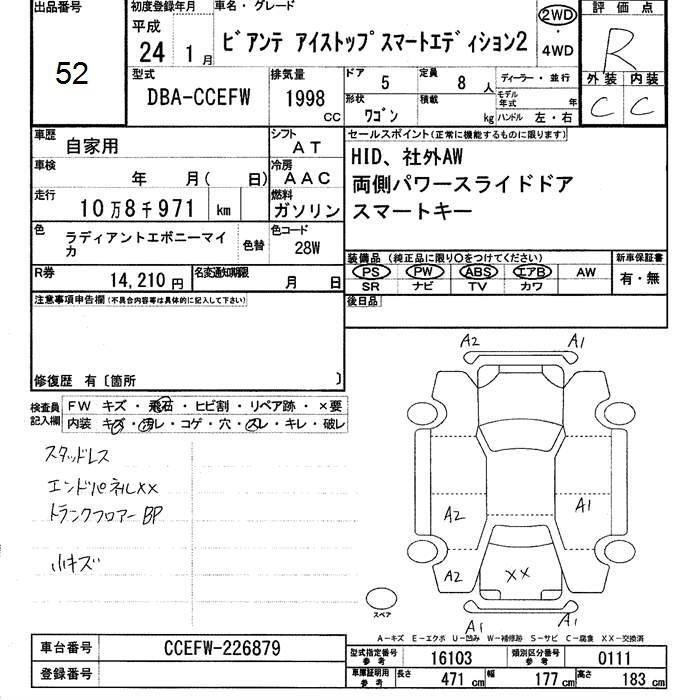 出品番号
52
初度登録年月
平成
24 1月
車名・グレード
ビアンテ アイストップ スマートエディション2
2WD
・
4WD
評価点
R
外装 内装
C C
型式
DBA-CCEFW
排気量
1998
CC
ドア 5
定員 8 人
形状
ワゴン
積載
kg
ディーラー・並行
モデル年式 年
ハンドル 左・右
車歴 自家用
シフト
AT
車検 年 月( 日)
冷房
AAC
走行 10万8千971 km
燃料
ガソリン
色 ラディアントエボニーマイカ
色替
色コード
28W
R券 14,210円
名変通知期限 月 日
セールスポイント(正常に機能するものに限ります)
HID、社外AW
両側パワースライドドア
スマートキー
装備品(純正品に限り○をつけてください)
PS PW ABS エアB AW
SR ナビ TV カワ
新車保証書
有・無
後日品
注意事項申告欄(不具合内容等は具体的に記入して下さい)
修復歴 有〔箇所 〕
検査員記入欄
FW キズ・飛石・ヒビ割・リペア跡・×要
内装 キズ・汚レ・コゲ・穴・スレ・キレ・破レ
スタッドレス
エンドパネルXX
トランクフロアーBP
小キズ
A2 A1
A2 A1
A2 XX
A1 A1
スペア
A-キズ E-エクボ U-凹み W-補修跡 S-サビ C-腐食 XX-交換済
車台番号 CCEFW-226879
登録番号
型式指定番号 参考 16103
類別区分番号 参考 0111
車庫証明用 参考 長さ 471 cm 幅 177 cm 高さ 183 cm